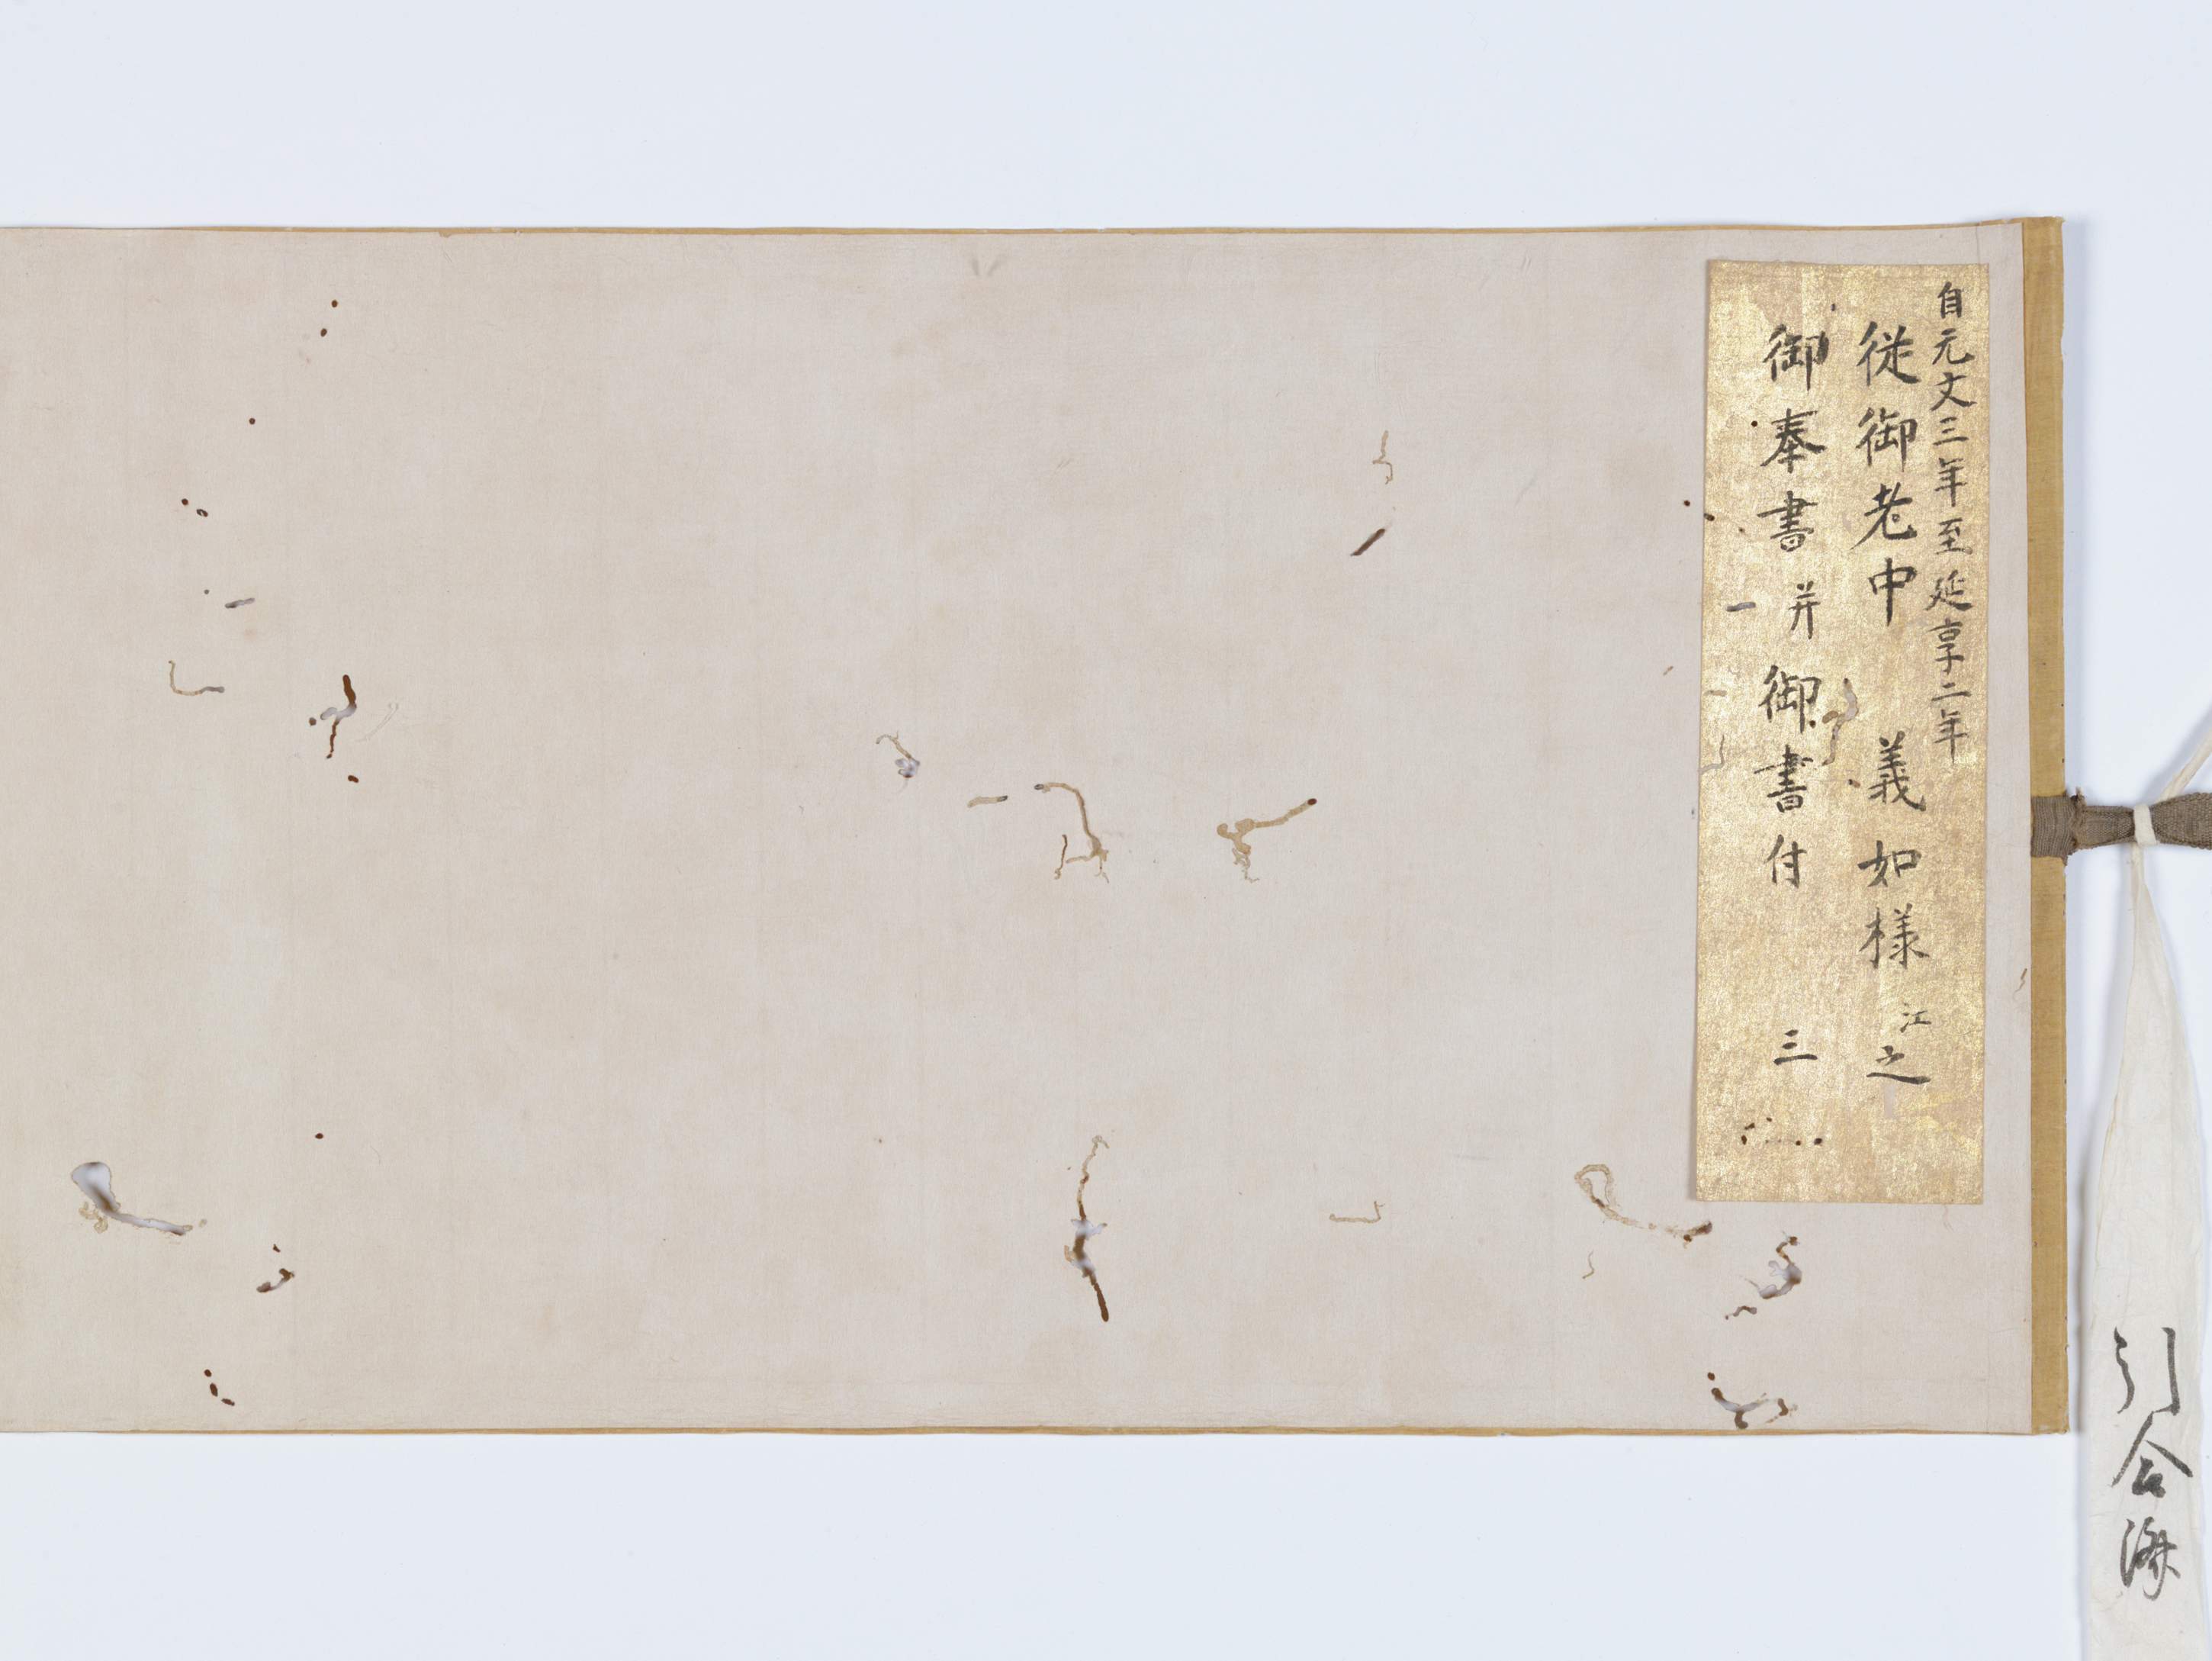 自元文三年至延享二年
従御老中 義如様江之
御奉書并御書付 三
引合済